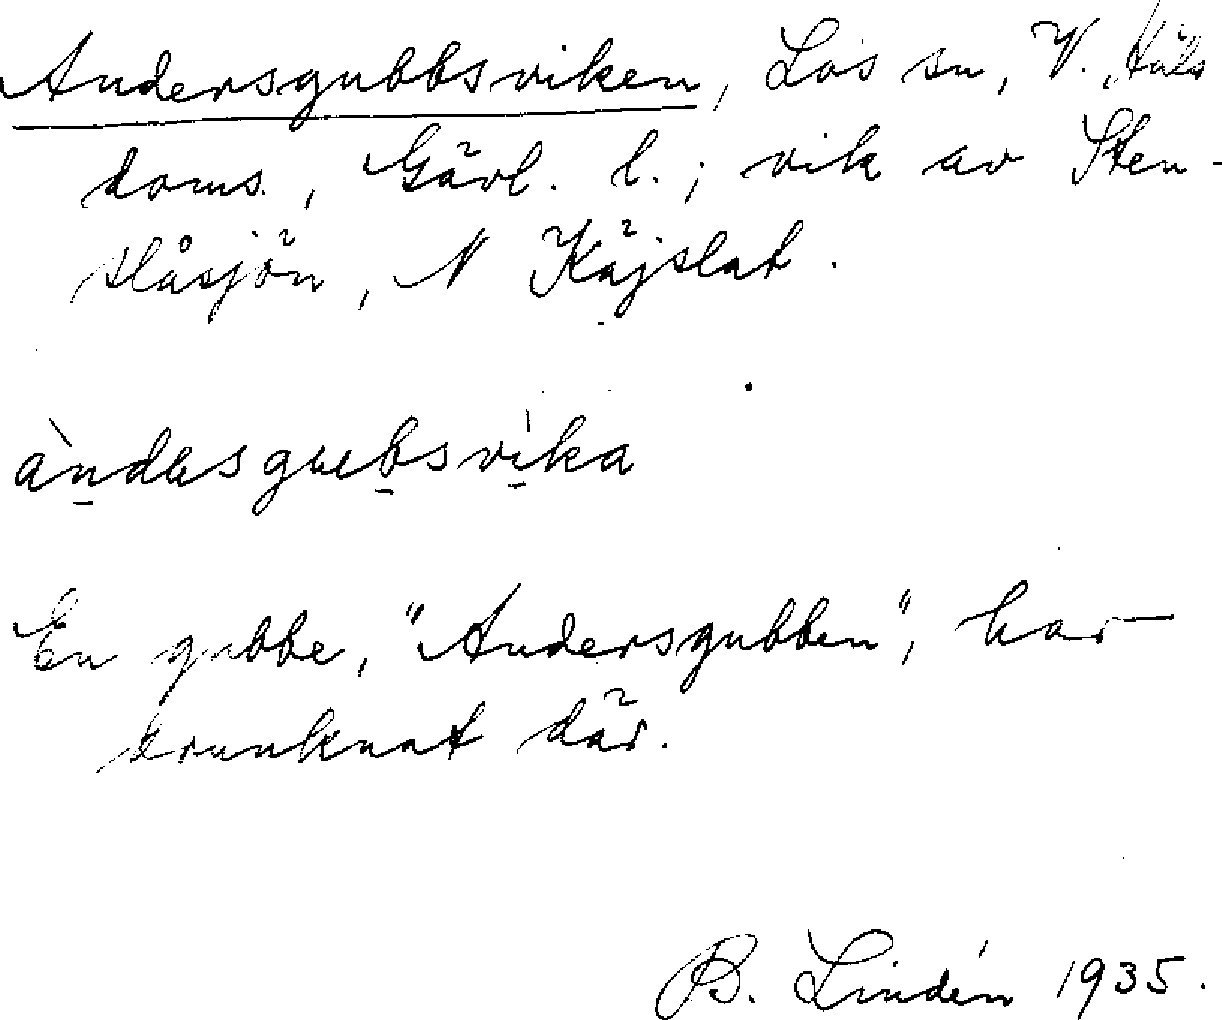 Andersgubbsviken, Los sn, V. Häls
doms., Gävl. l.; vik av Sten-
slåsjön, N Käjslat.
àndesgubsvika
En gubbe, "Andersgubben", har
drunknat där.
B. Lindén 1935.